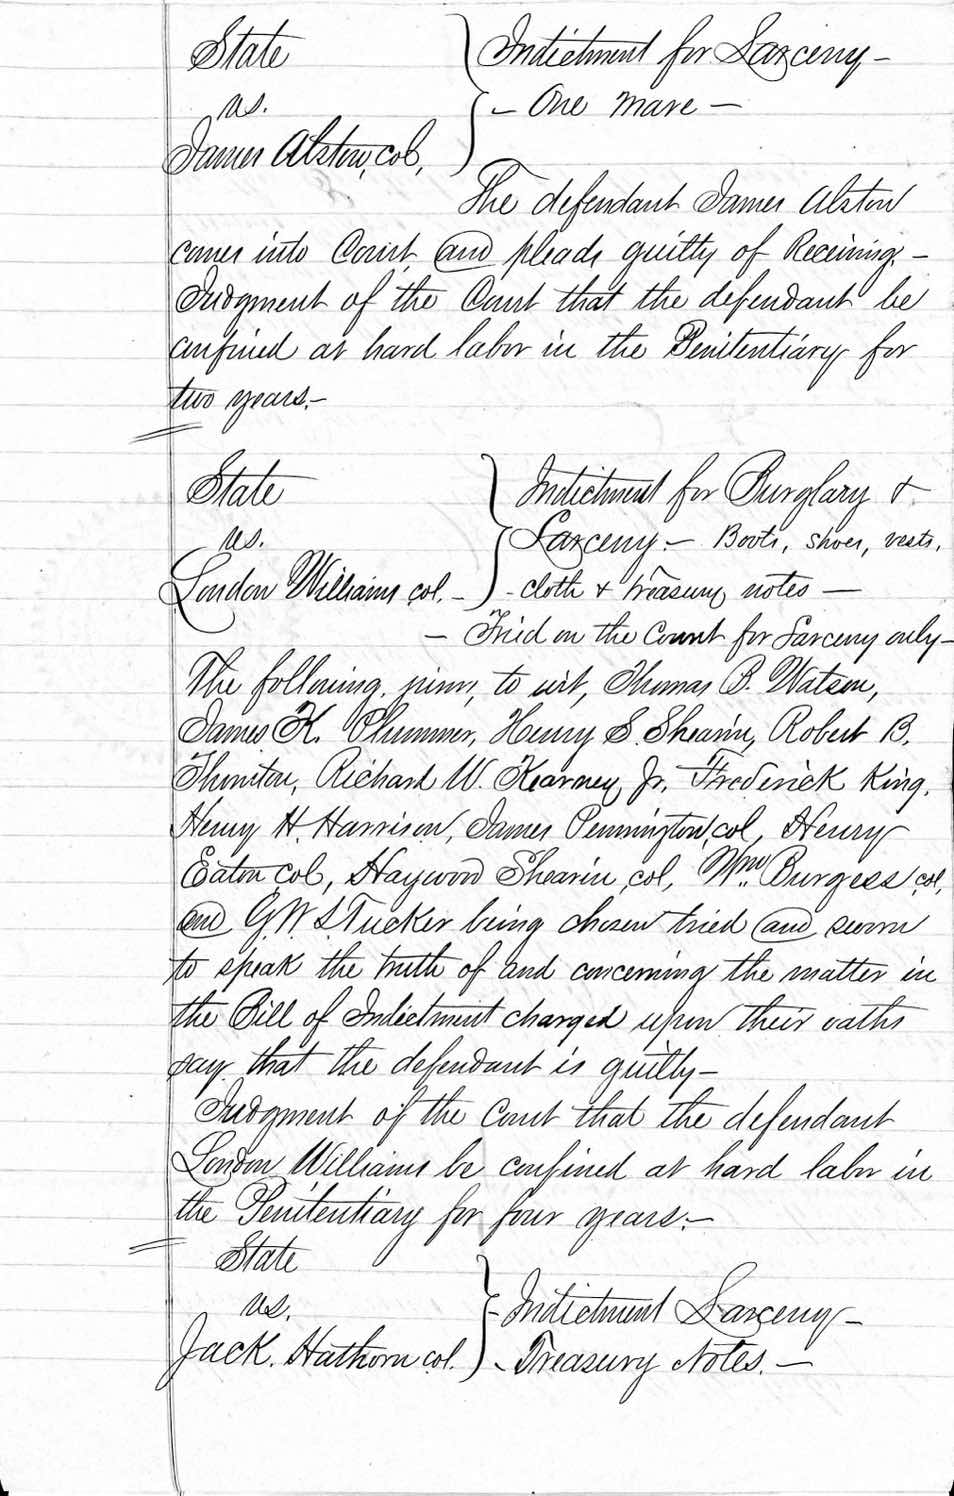 State } Indictment for Larceny –
vs. – One mare –
James Alston, col,
The defendant James Alston
comes into Court and pleads guilty of Receiving. –
Judgment of the Court that the defendant be
confined at hard labor in the Penitentiary for
two years. –
State } Indictment for Burglary &
vs. Larceny. – Boots, shoes, vests,
London Williams col. – - cloth & treasury notes –
– Tried on the Count for Larceny only –
The following jurors, to wit, Thomas B. Watson,
James K. Plummer, Henry S. Shearin, Robert B.
Thornton, Richard W. Kearney Jr, Frederick King,
Henry H. Harrison, James Pennington, col, Henry
Eaton, col, Haywood Shearin, col, Wm. Burgess col,
and G. W. S. Tucker being chosen tried and sworn
to speak the truth of and concerning the matter in
the Bill of Indictment charged upon their oaths
say that the defendant is guilty –
Judgment of the Court that the defendant
London Williams be confined at hard labor in
the Penitentiary for four years. –
State
vs. } - Indictment Larceny –
Jack. Hathorn col. - Treasury Notes. –